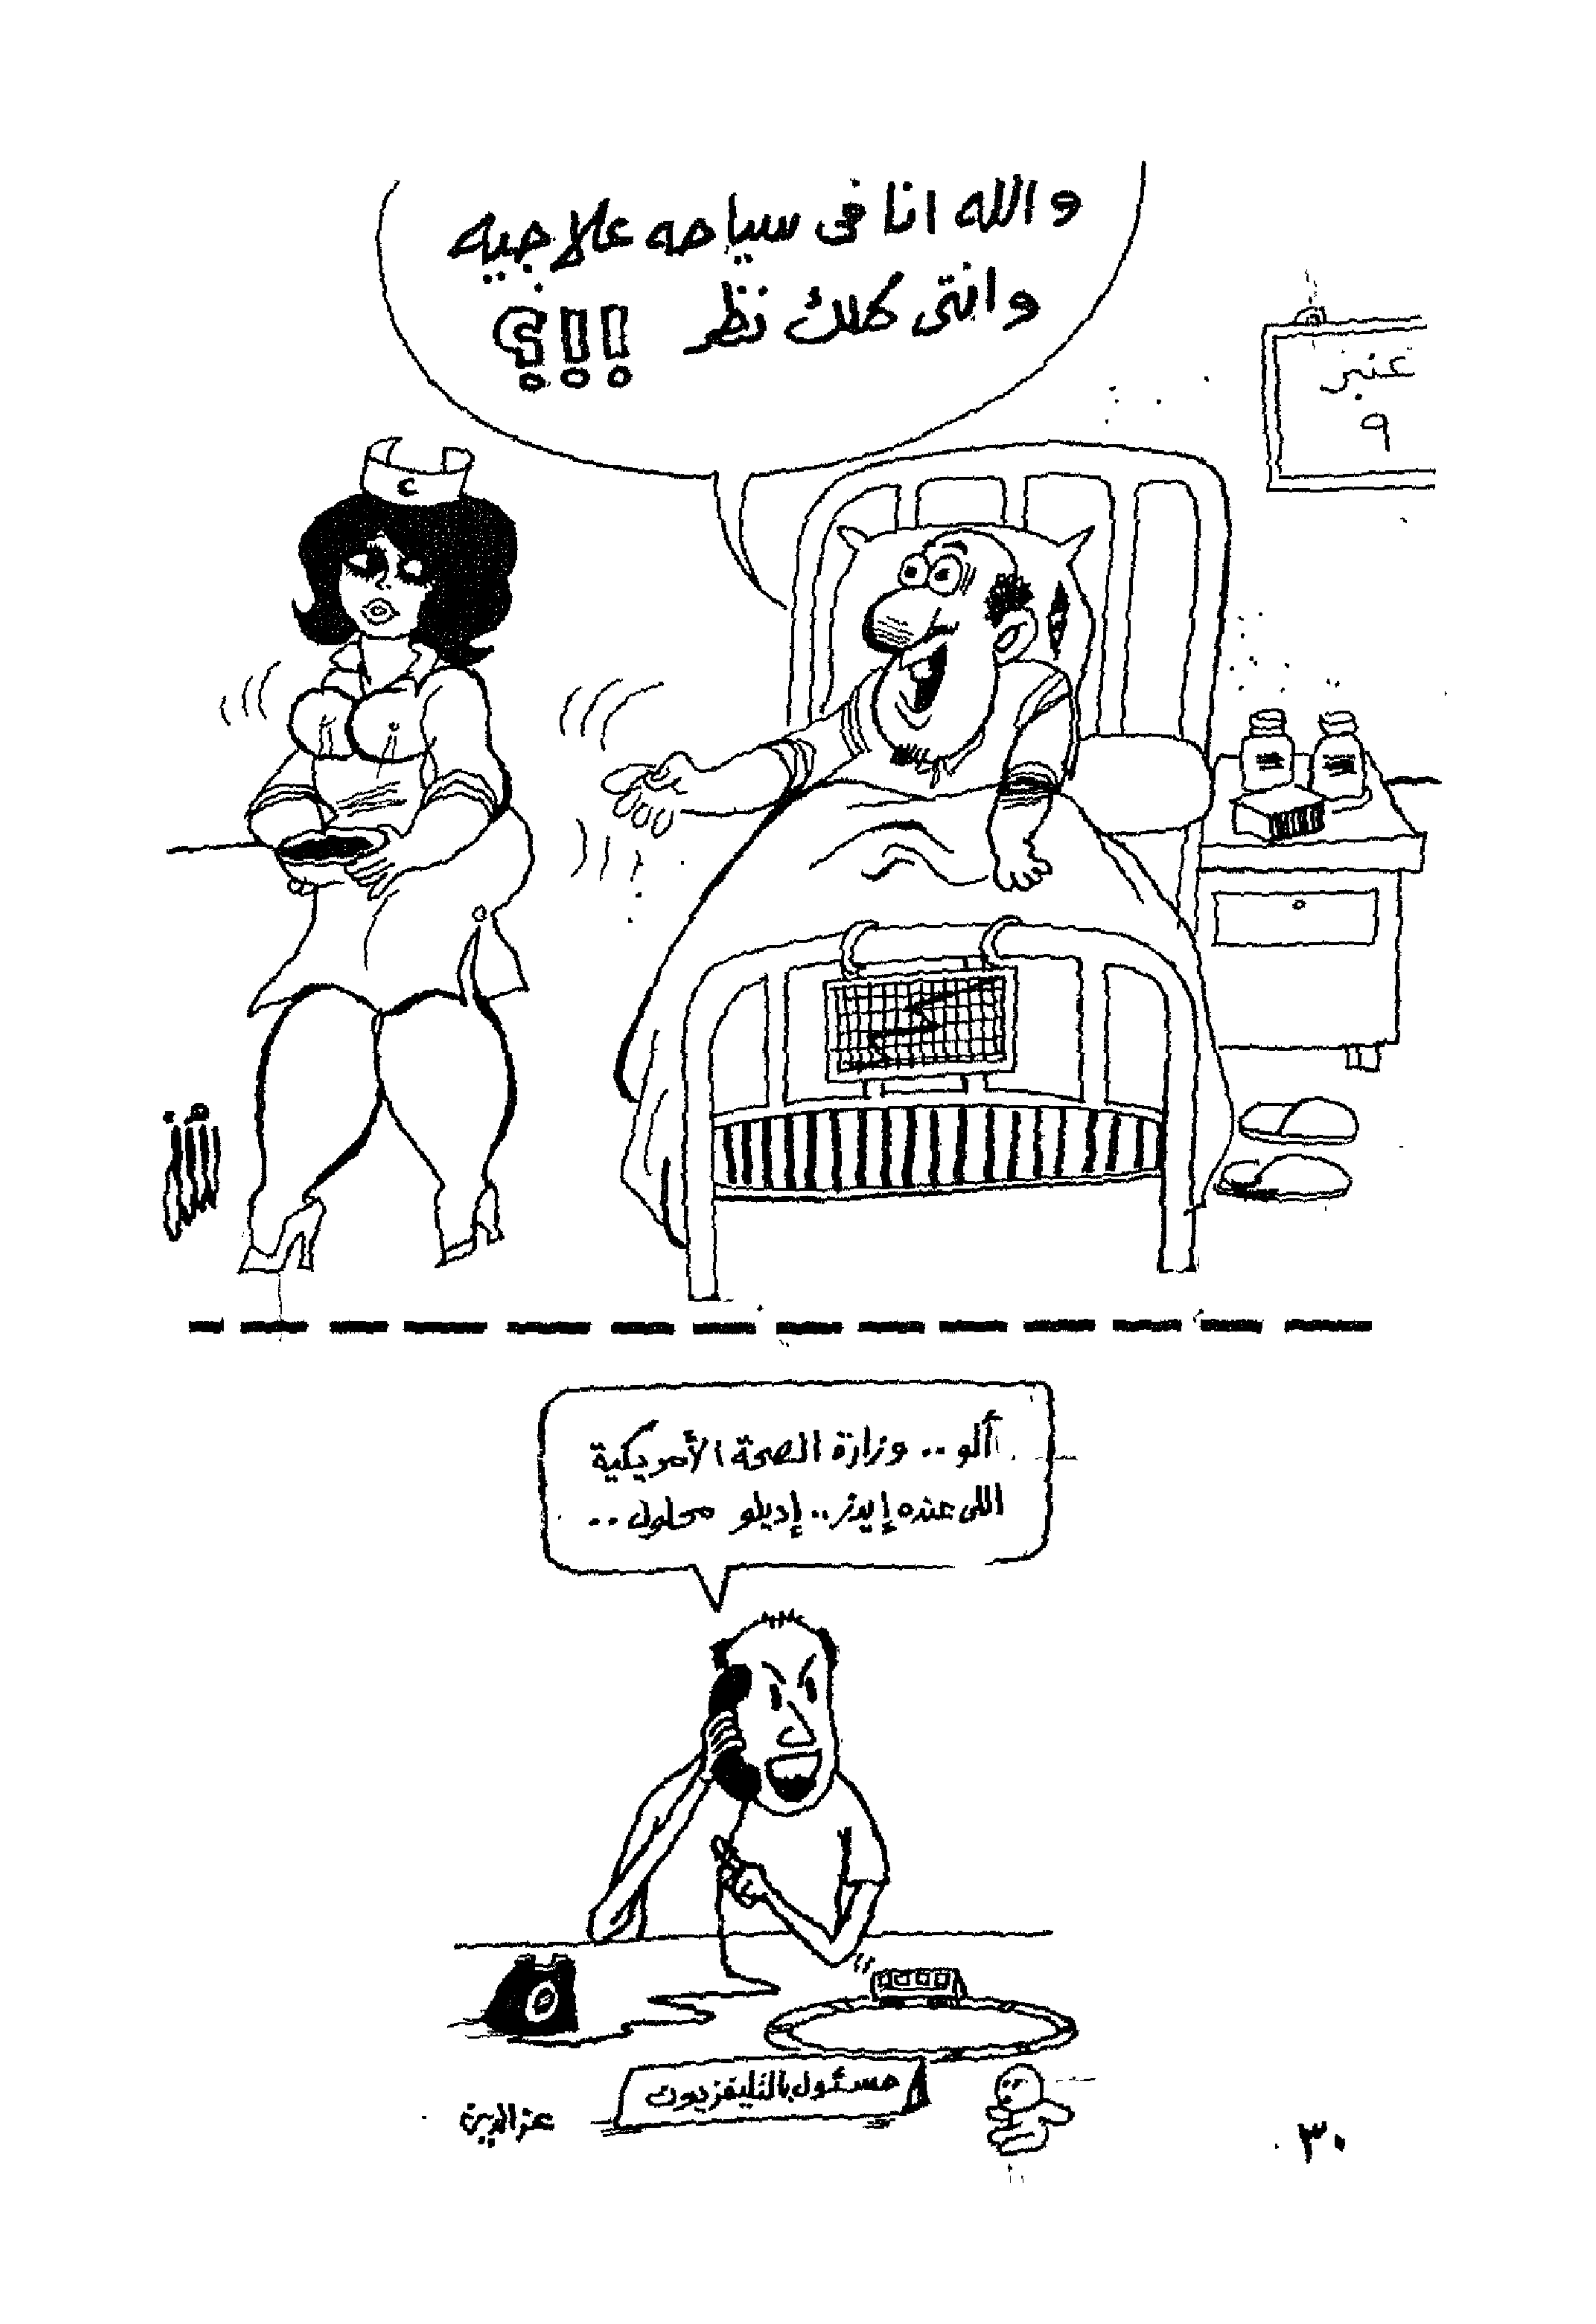 والله انا فى سياحه علاجيه
وانتى كلك نظر !!!؟
عنبر
٩
ألو .. وزارة الصحة الأمريكية
اللى عنده إيدز .. إديلو محلول ..
مسئول بالتليفزيون
عز الدين
٣٠